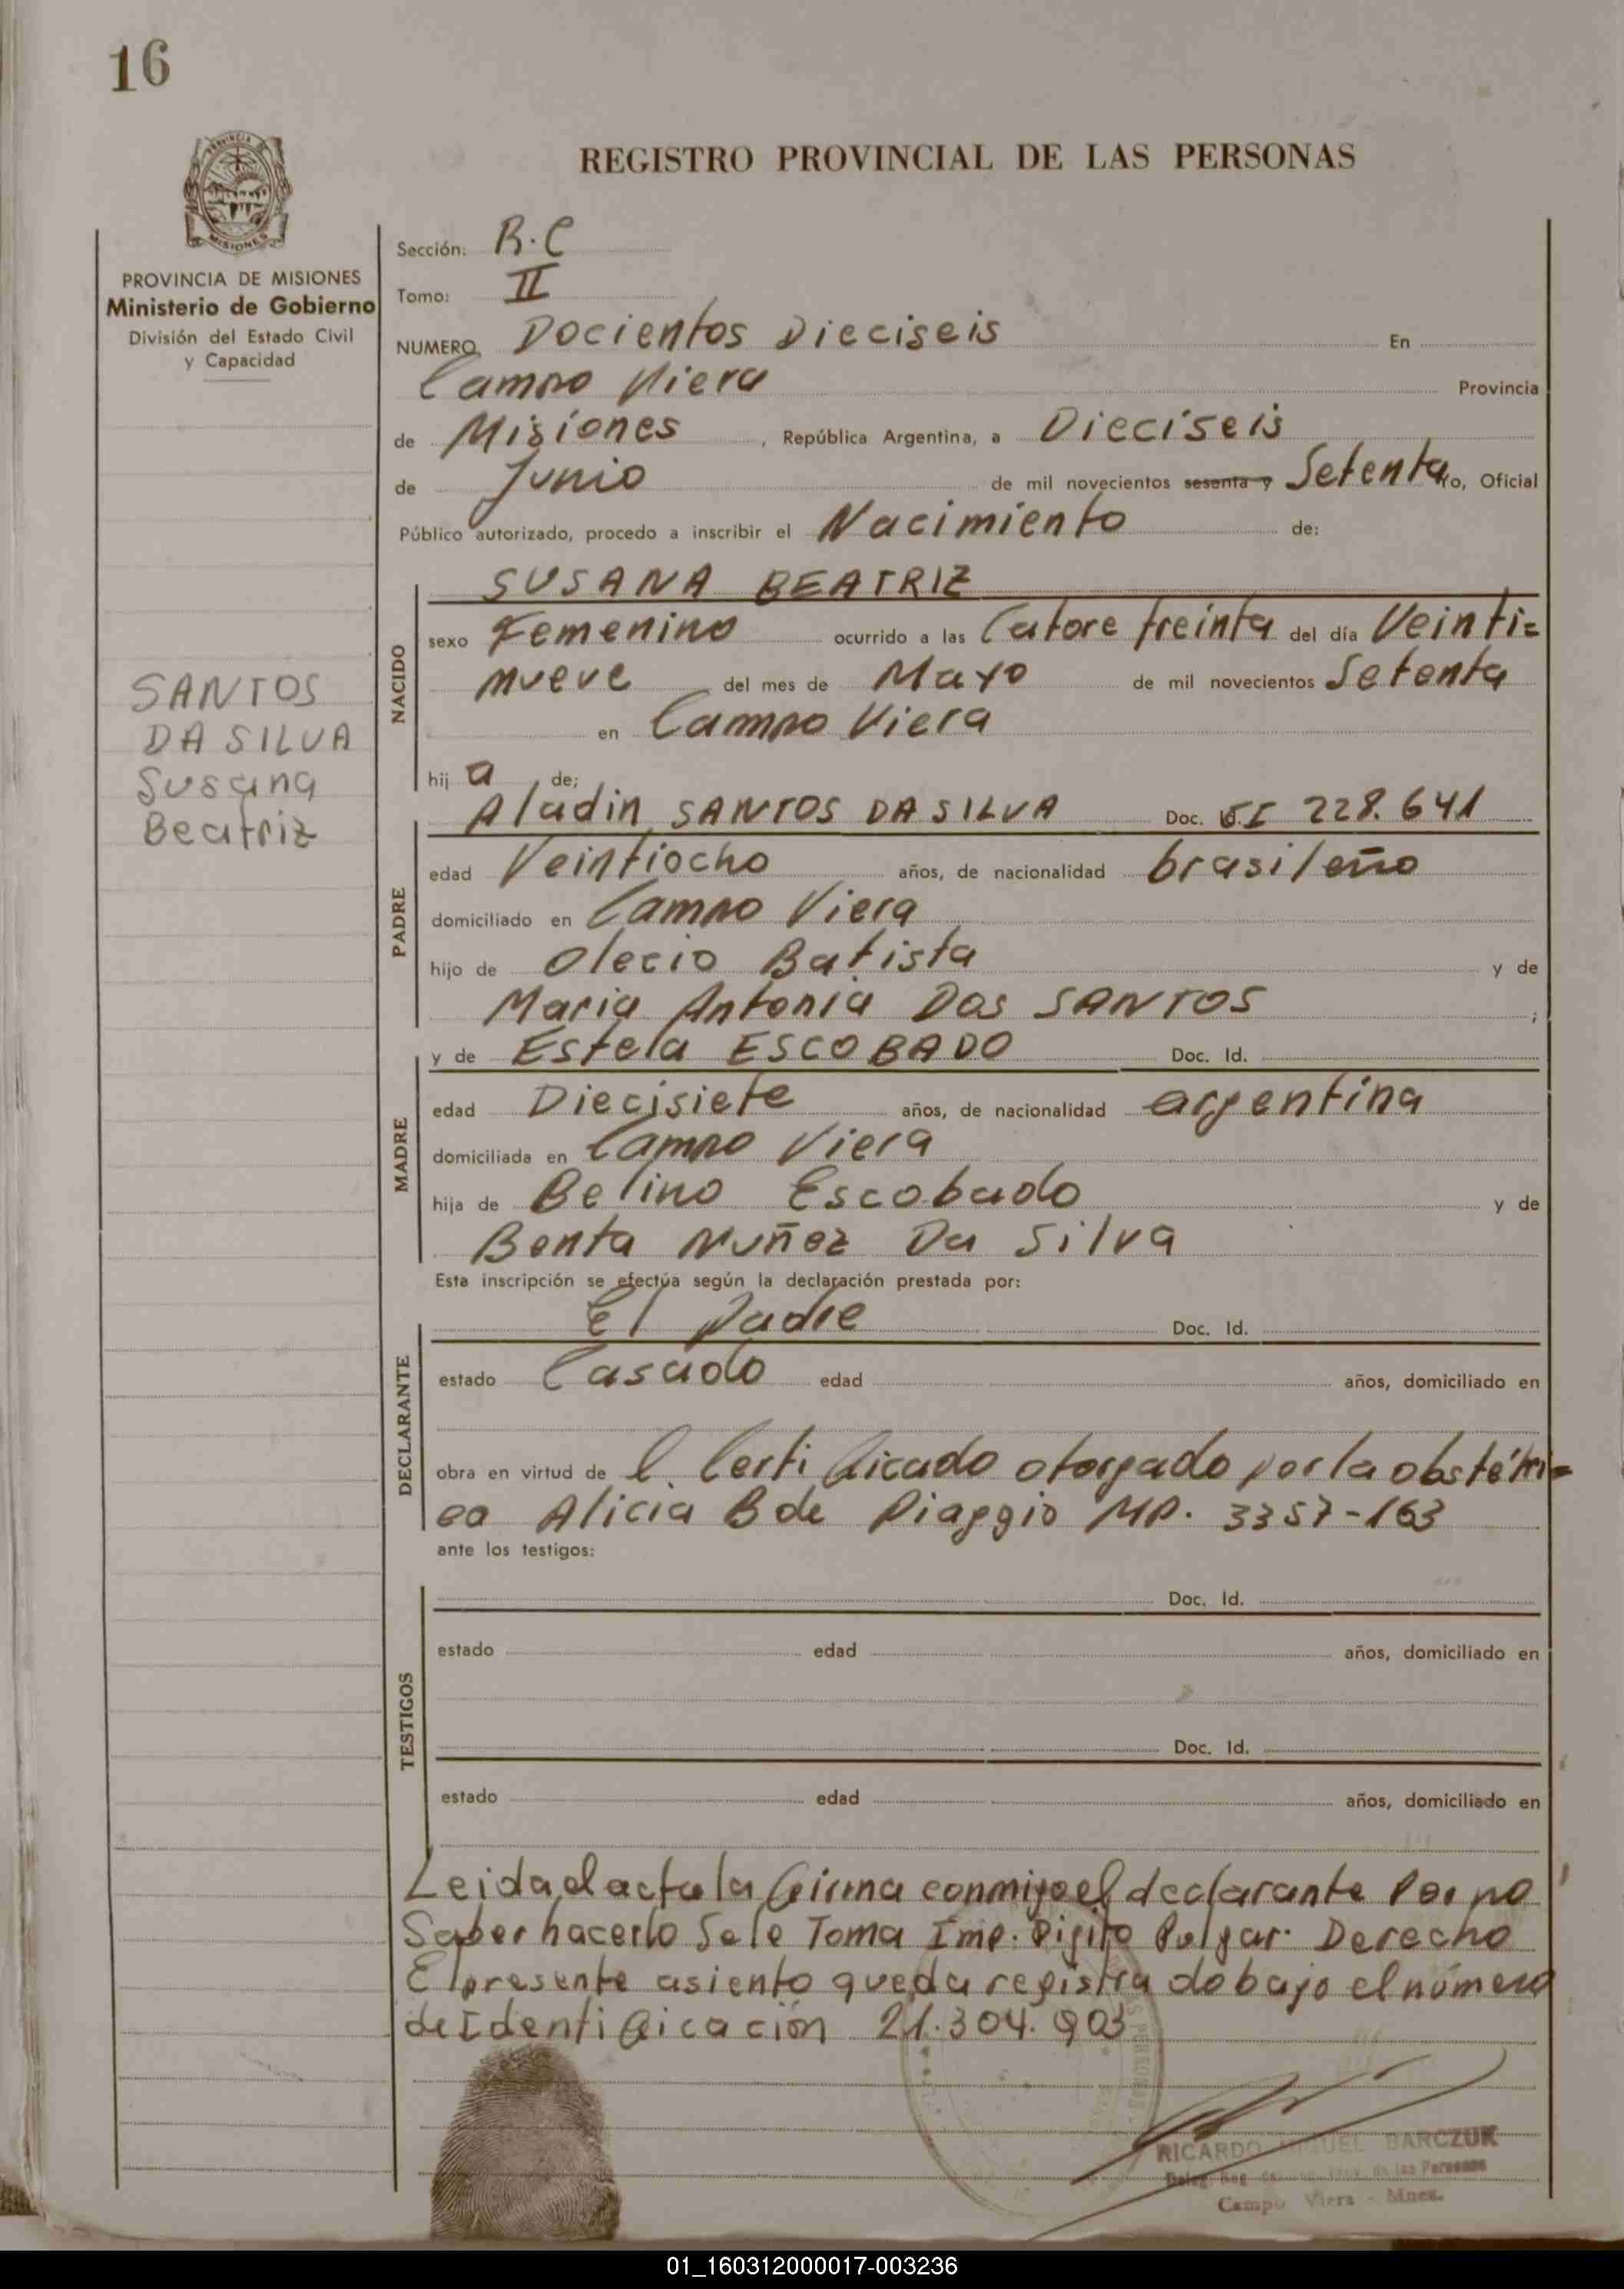 16
REGISTRO PROVINCIAL DE LAS PERSONAS
PROVINCIA DE MISIONES
Ministerio de Gobierno
División del Estado Civil
y Capacidad
SANTOS
DA SILVA
Susana
Beatriz
Sección: R.C
Tomo: II
NUMERO Docientos Dieciseis En
Campo Viera Provincia
de Misiones, República Argentina, a Dieciseis
de Junio de mil novecientos sesenta y Setenta yo, Oficial
Público autorizado, procedo a inscribir el Nacimiento de:
NACIDO
SUSANA BEATRIZ
sexo Femenino ocurrido a las Catore treinta del día Veinti=
nueve del mes de Mayo de mil novecientos Setenta
en Campo Viera
hij a de;
PADRE
Aladin SANTOS DA SILVA Doc. I 228.641
edad Veintiocho años, de nacionalidad brasileño
domiciliado en Campo Viera
hijo de Olecio Batista y de
Maria Antonia Dos SANTOS ;
MADRE
y de Estela ESCOBADO Doc. Id.
edad Diecisiete años, de nacionalidad argentina
domiciliada en Campo Viera
hija de Belino Escobado y de
Benta Nuñez Da Silva
Esta inscripción se efectúa según la declaración prestada por:
DECLARANTE
El padre Doc. Id.
estado Casado edad años, domiciliado en
obra en virtud de l Certificado otorgado por la obstétri=
ca Alicia B de Piaggio MP. 3357-163
ante los testigos:
TESTIGOS
Doc. Id.
estado edad años, domiciliado en
Doc. Id.
estado edad años, domiciliado en
Leida el acta la firma conmigo el declarante Por no
Saber hacerlo Se le Toma Imp. Digito Pulgar Derecho
El presente asiento queda registrado bajo el número
de Identificación 21.304.903
RICARDO MIGUEL BARCZUK
de las Personas
Campo Viera - Mnes.
01_160312000017-003236